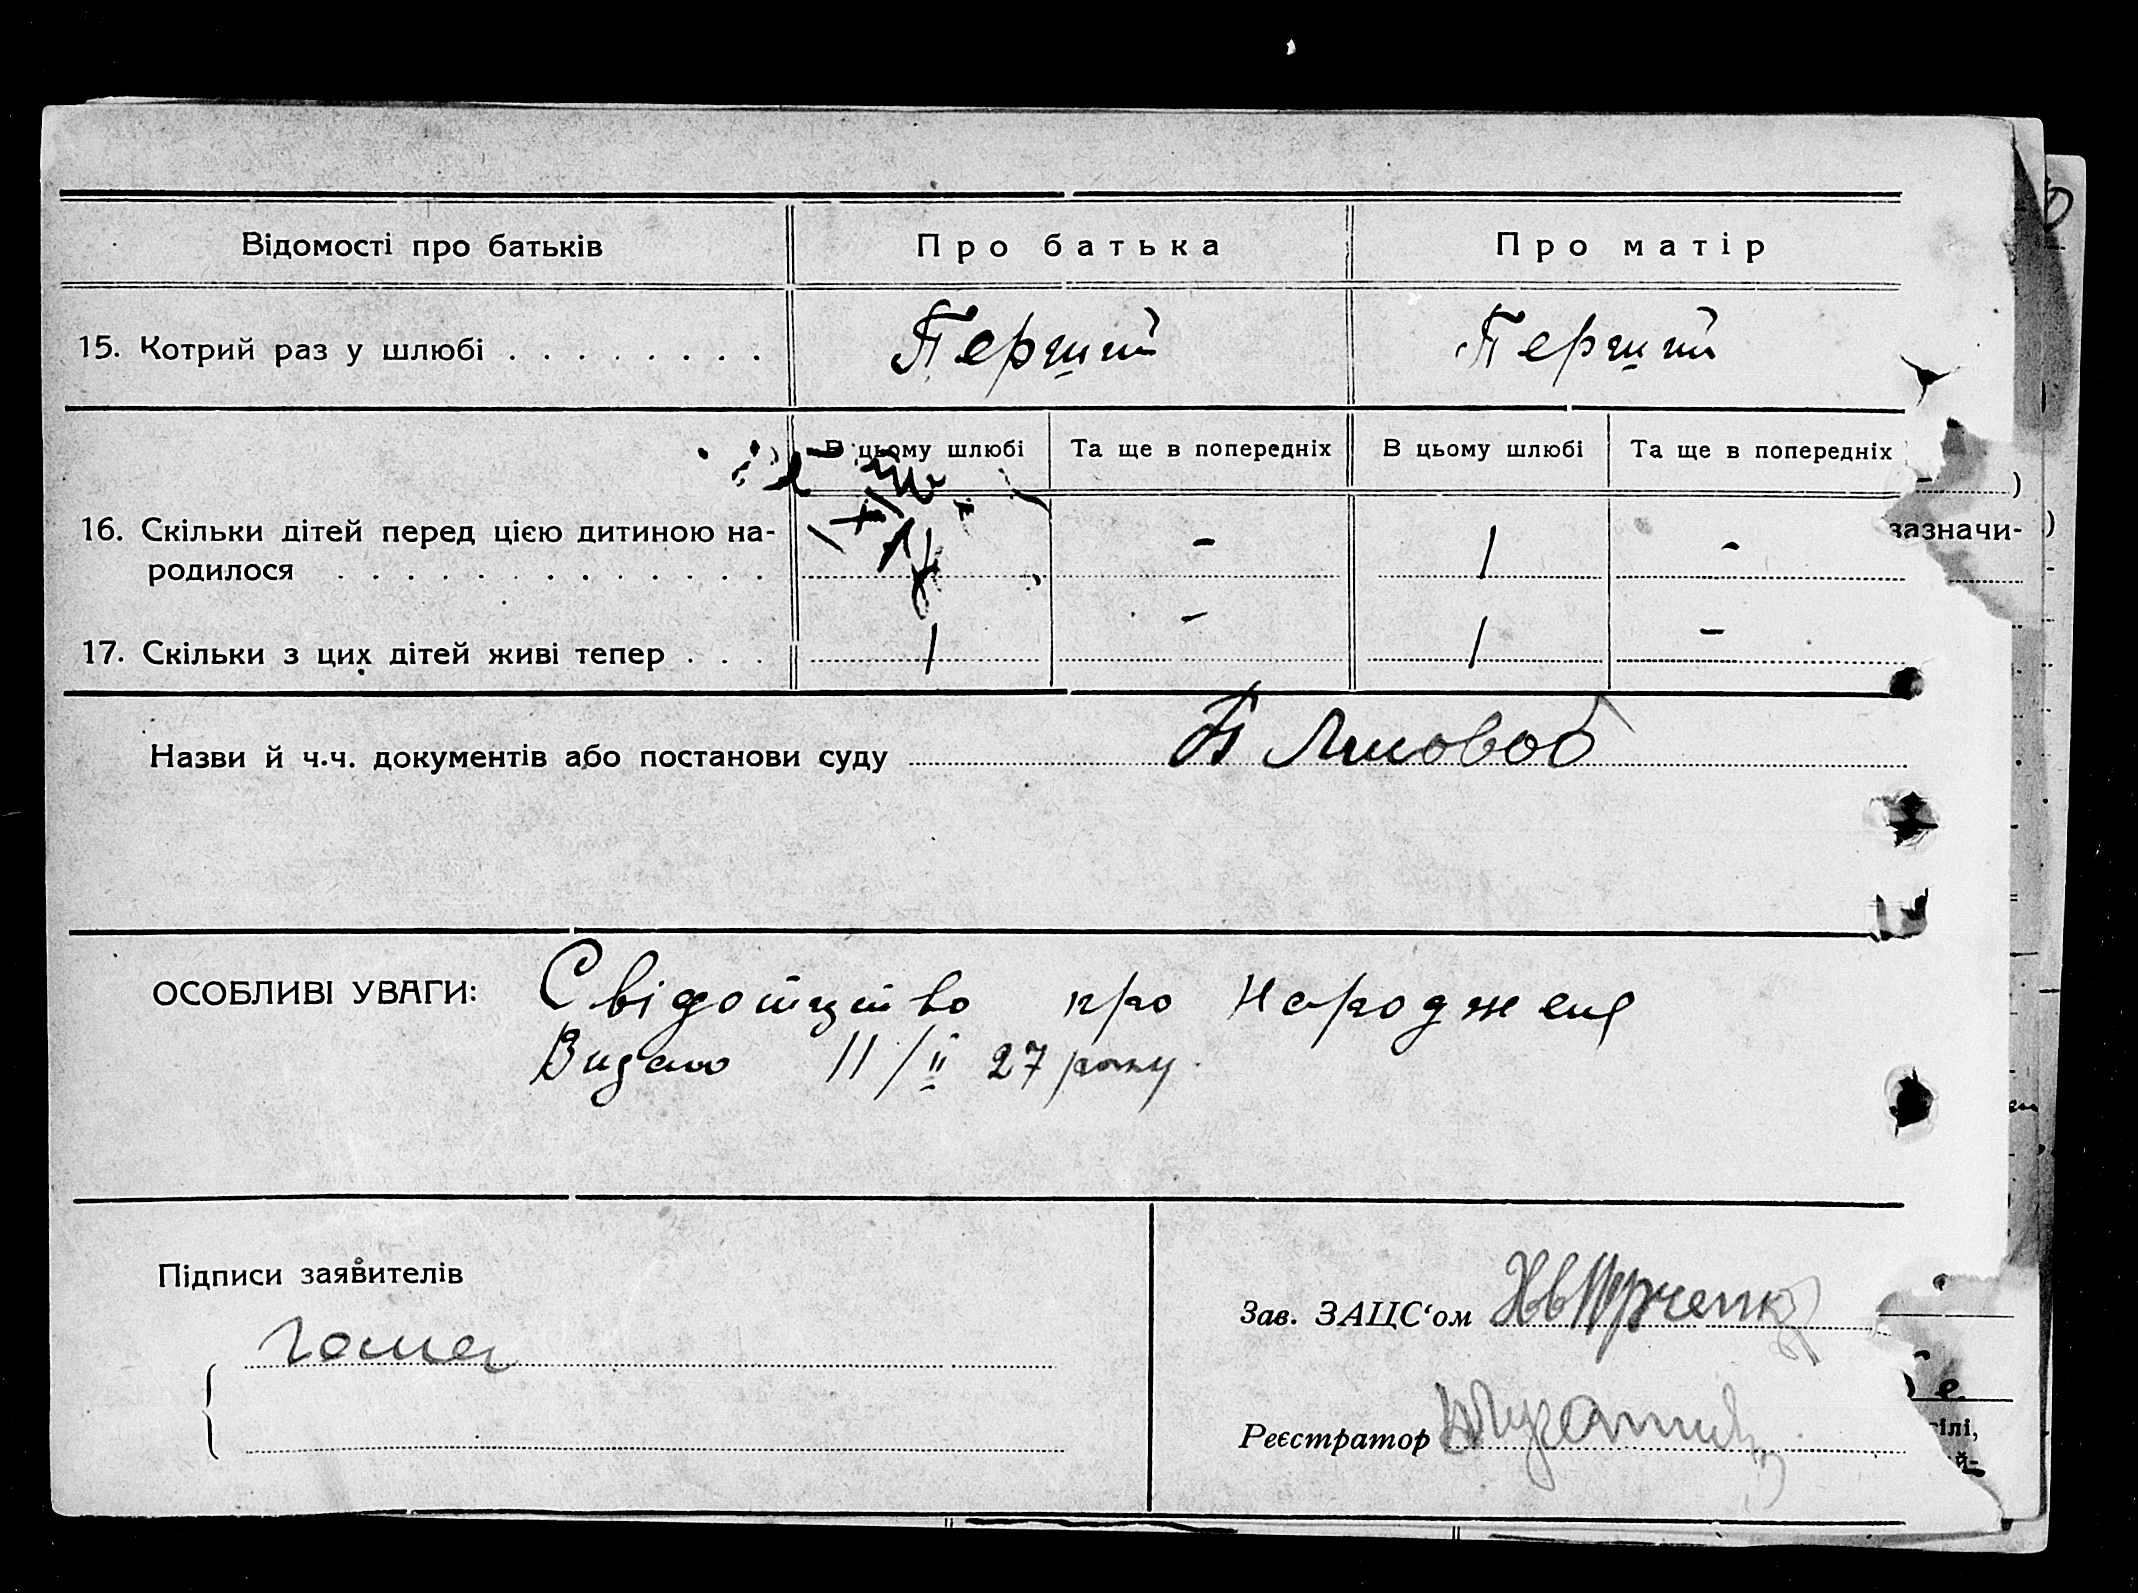 Відомості про батьків
Про батька
Про матір
15. Котрий раз у шлюбі . . . . . . . .
Перший
Перший
В цьому шлюбі
Та ще в попередніх
В цьому шлюбі
Та ще в попередніх
16. Скільки дітей перед цією дитиною на-
родилося . . . . . . . . . . . . .
-
1
-
17. Скільки з цих дітей живі тепер . . .
1
-
1
-
зазначи-
Назви й ч.ч. документів або постанови суду
ОСОБЛИВІ УВАГИ:
Свідотцтво про Народженя
Видано 11/II 27 року.
Підписи заявителів
Зав. ЗАЦС‘ом
Реєстратор
ілі,
й-